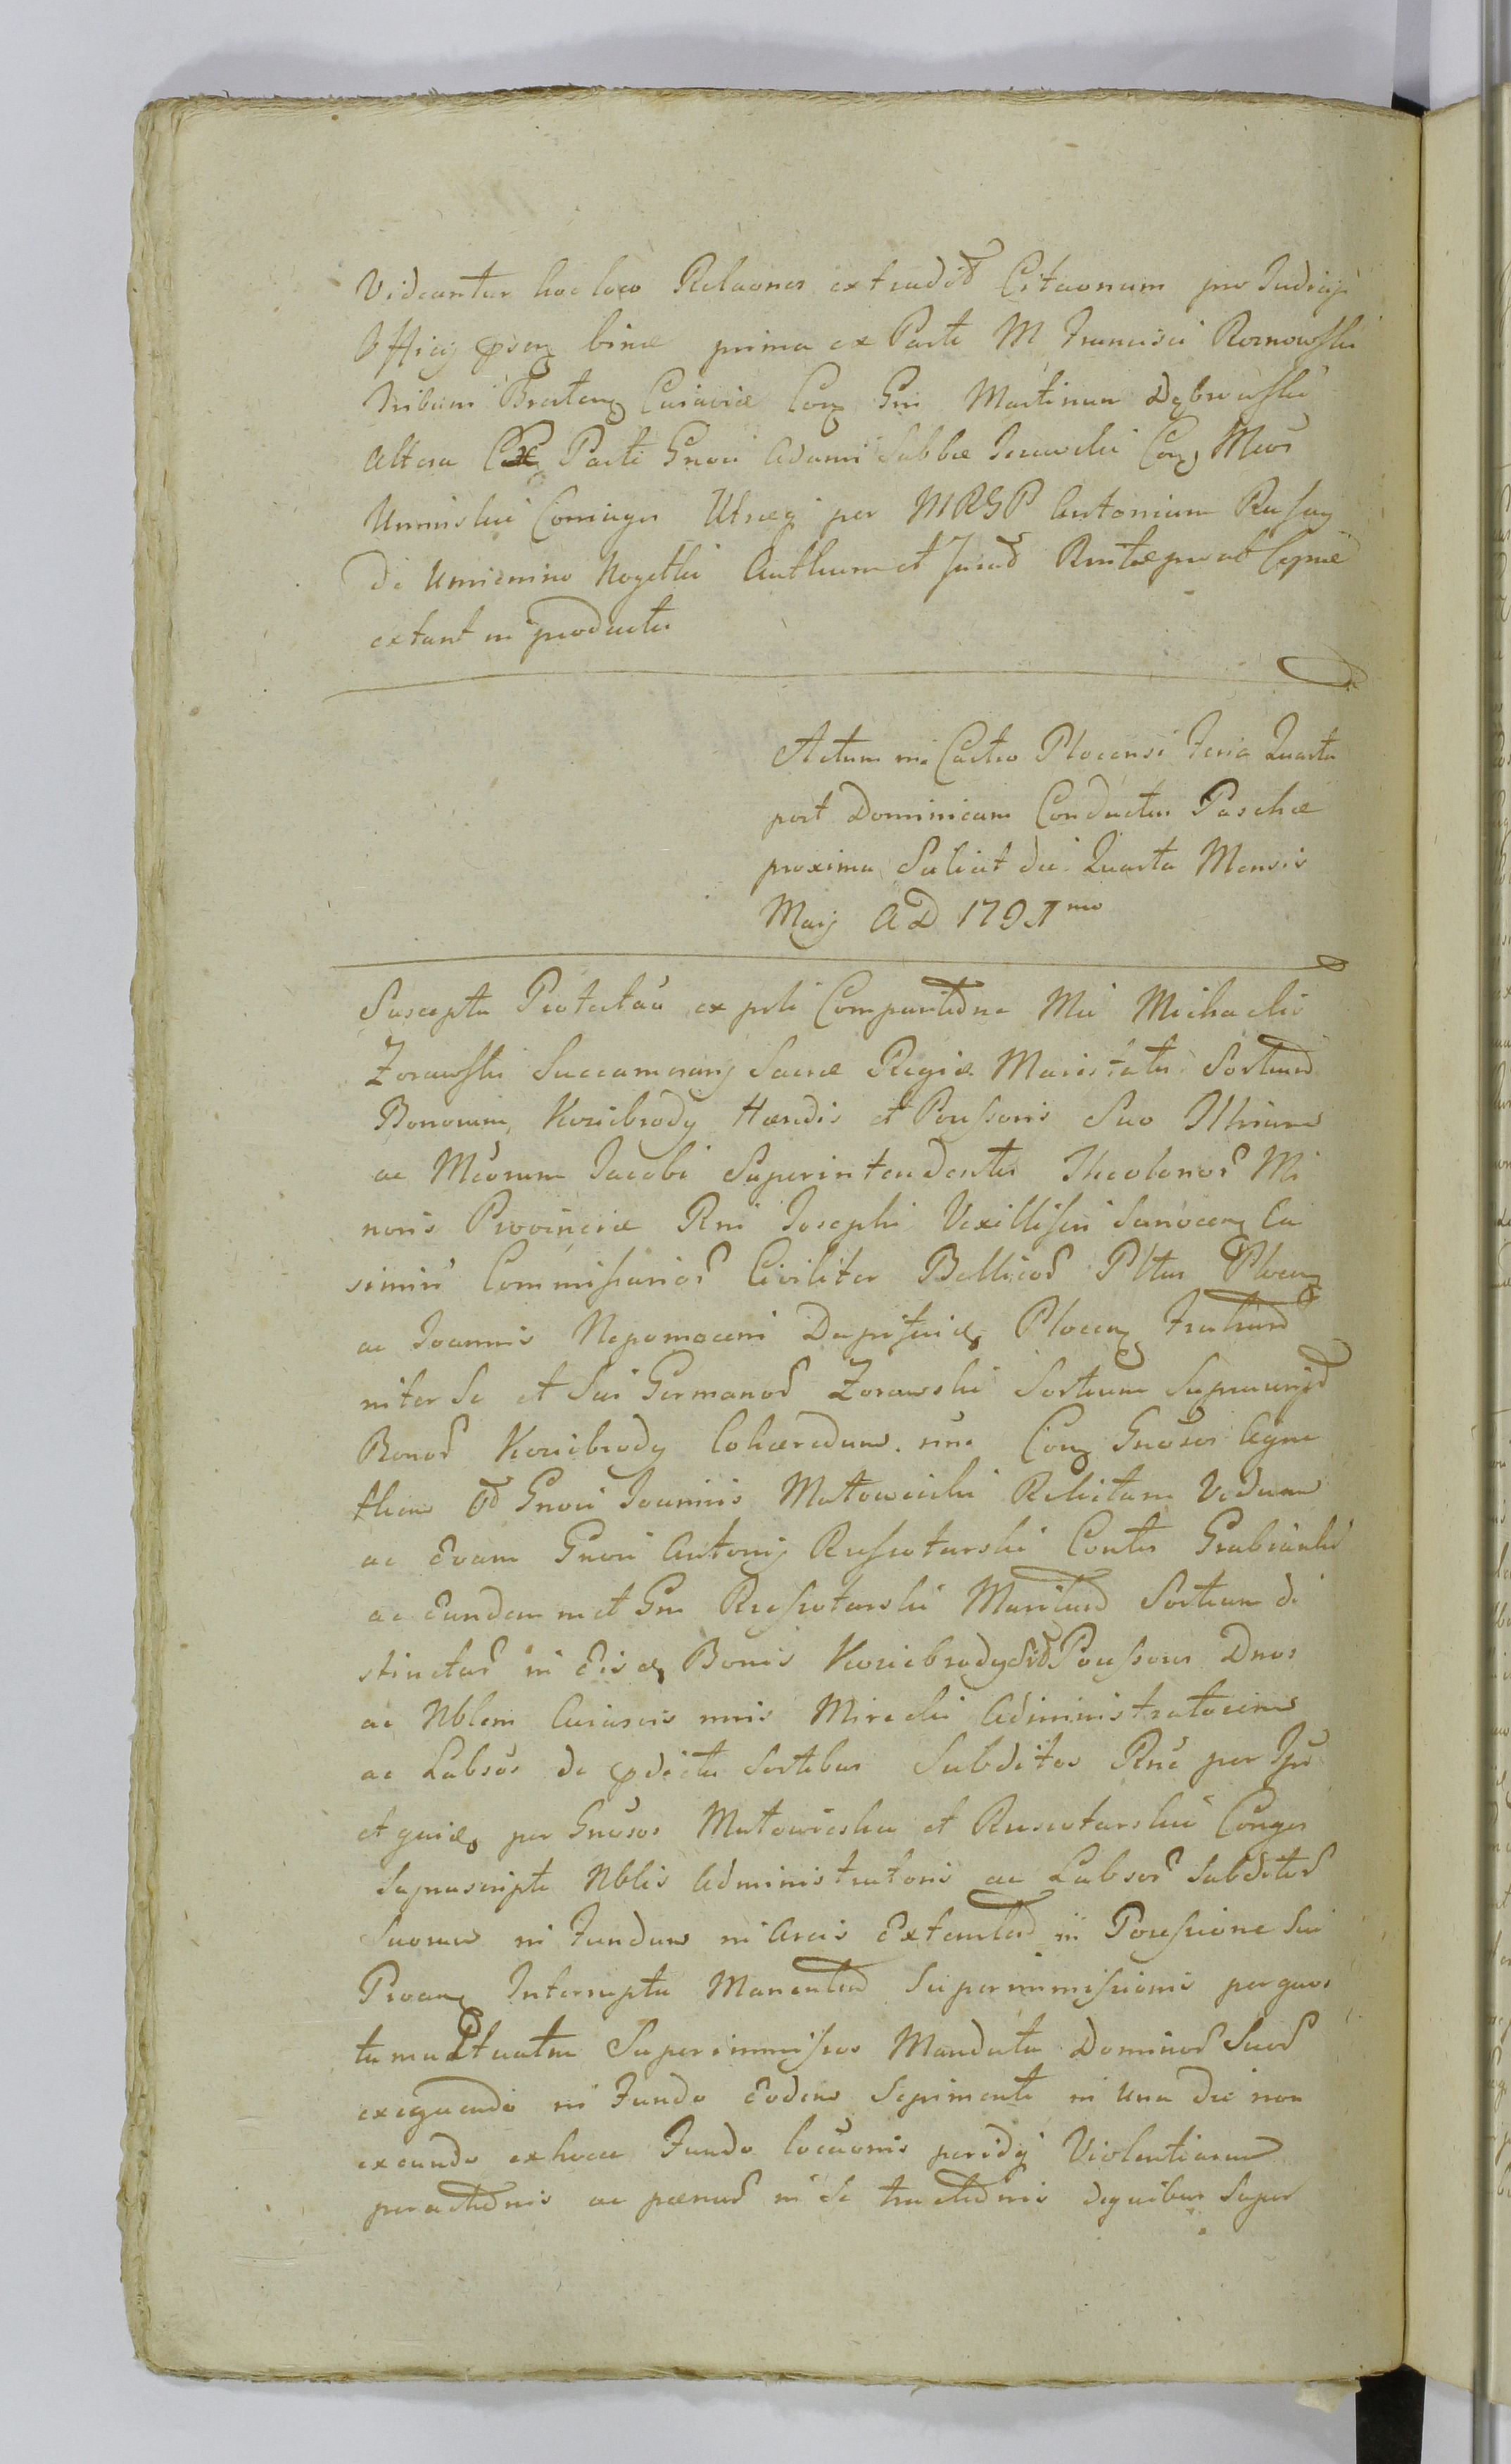 Videantur hoc loco Relaones extradit Citaonum pro Judicijs
Officij psen binæ prima ex Parte M Francisci Roznowski
Tribuni Bresten Cuiaviæ Con Gm Martinum Dębrowski
Altera Ex Parte Gnosi Adami Subbæ Jerewski Con Mcos
Uminski Coniuges Utræq per MRGP Antonium Russay
de Umienino Nogetki Authum et Jurad Rentæ prout Copiæ
extant in producto
Actum in Castro Plocensi Feria Quarta
post Dominicam Conductus Paschæ
proxima Scilicet die Quarta Mensis
Maij AD 1791mo
Suscepta Protestao ex psli Comparitione Mci Michaelis
Zorawski Succamerarij Sacræ Regiæ Maiestatis Sortium
Bonorum Koziebrody Hæredis et Possessoris Suo Illrium
ac Mcorum Jacobi Superintendentis Theolonor Mi
noris Provinciæ Rni Josephi Vexilliferi Sanocen Ca
simiri Commissarior Civiliter Bellicor Pltus Plocen
ac Joannis Nepomoceni Dapiferidę Plocen Fratrum
inter Se et Sui Germanor Zorawski Sortium Supranrijd
Bonor Koziebrody Cohæredum nne Con Gnosos Agne
them Gnosi Joannis Mutowieski Relictam Viduam
ac Evam Gnosi Antonij Russotarski Contis Grabianki
ac Eundem met Gm Russotarski Maritum Sortium di
stinctar in Eisdę Bonis Koziebrody Possessores Dnos
ac Nblem Cuiusvis nnis Mirecki Administratorem
ac Labsos de pdictis Sortibus Subditos Rne per Jps
et quidę per Gnosos Mutowieska et Russotarskie Conges
Suprascripti Nblis Administratoris ac Labsor Subditor
Suorum in Fundum in Areis Extantem in Possessione Sui
Proten Interrupta Manentem Superimmissionis per quos
tumultuatim Superimmissos Mandata Dominor Suor
exequendo in Fundo Eodem Sepimenti in una die non
exeundo exhocce Fundo locaonis peridq Violentiarum
peractionis ac pænar in Se tractionis dequibus Super